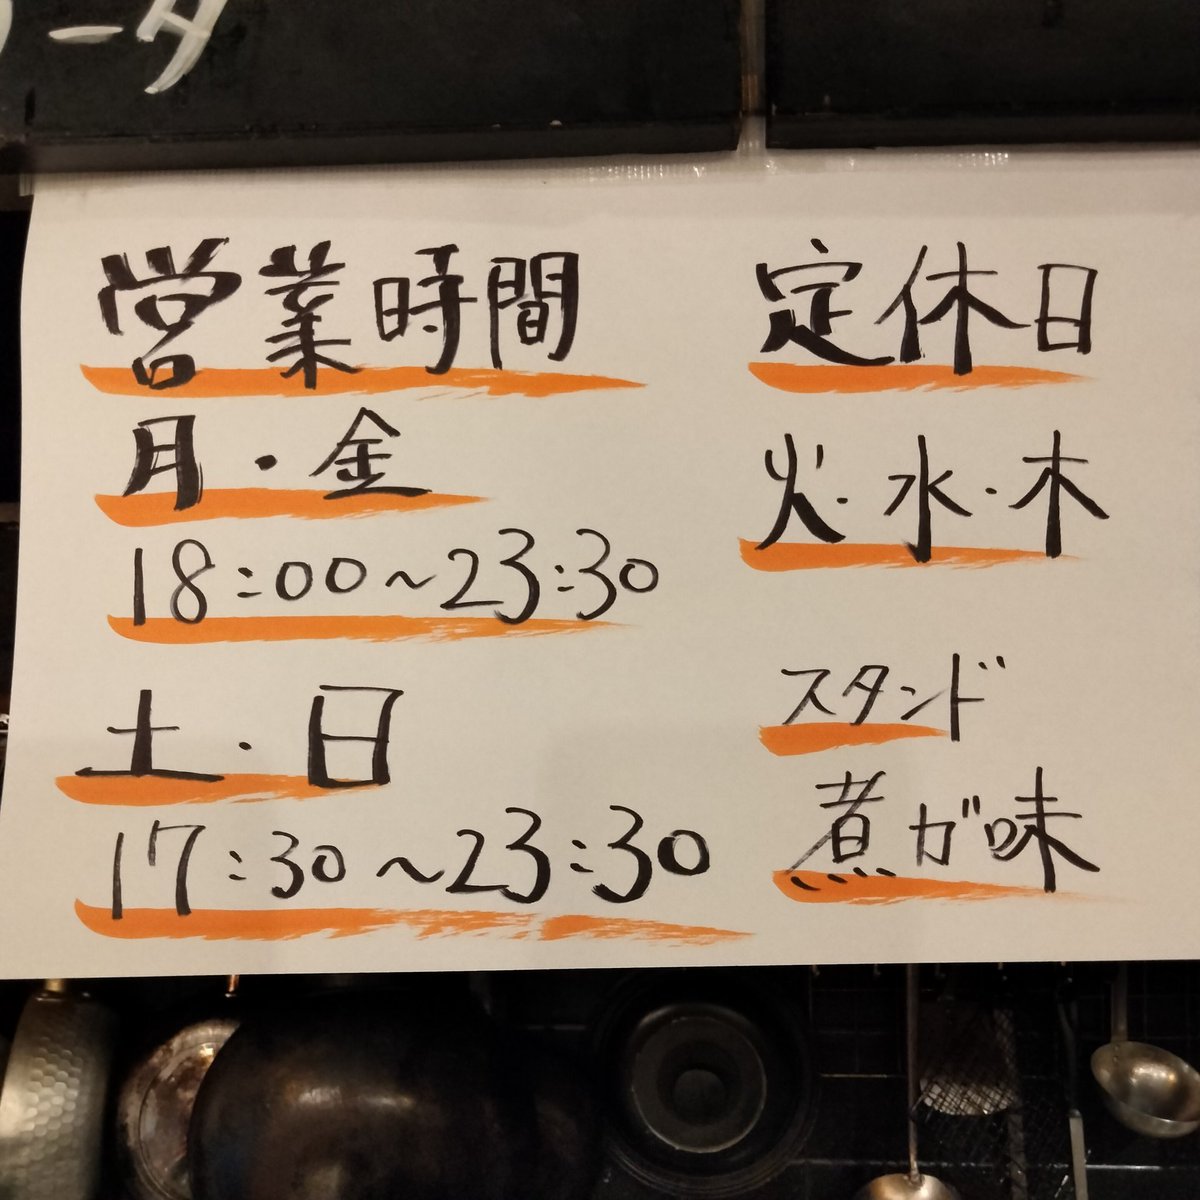 ータ
営業時間
月・金
18:00～23:30
土・日
17:30～23:30
定休日
火・水・木
スタンド
煮ガ味